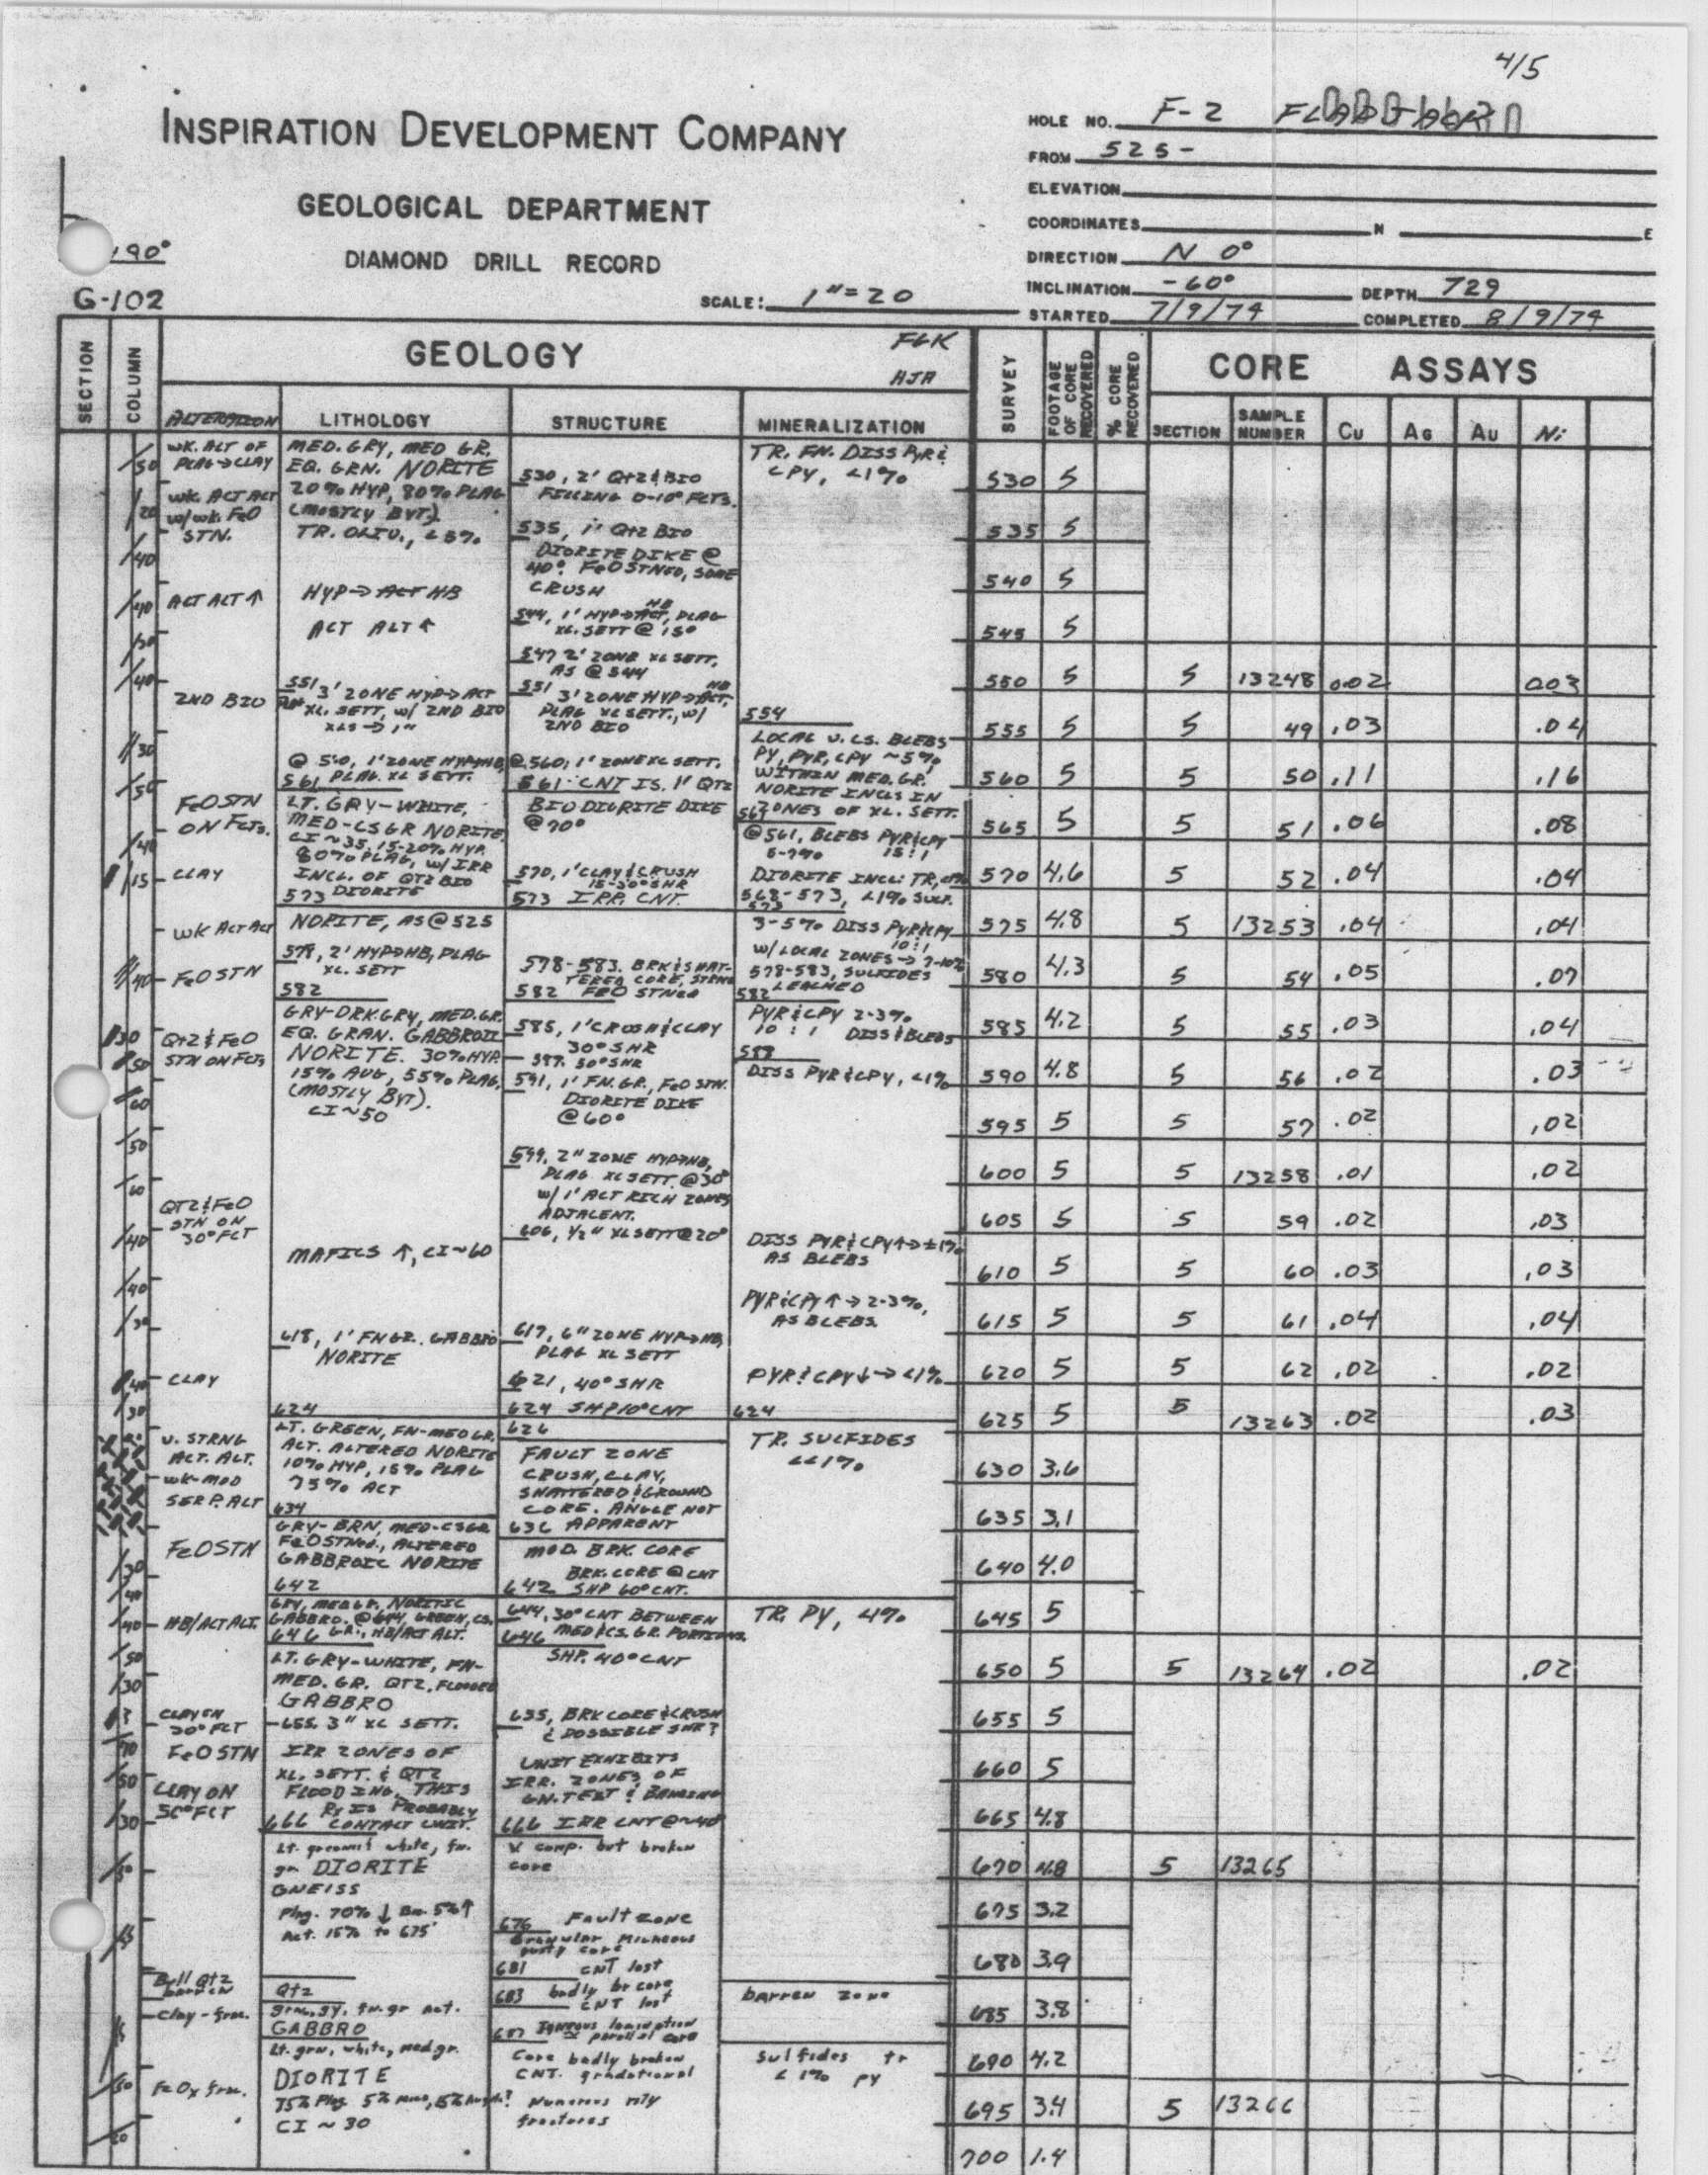 4/5
INSPIRATION DEVELOPMENT COMPANY
GEOLOGICAL DEPARTMENT
DIAMOND DRILL RECORD
190°
G-102
SCALE: 1"=20
HOLE NO. F-2
FROM 525-
ELEVATION
COORDINATES N E
DIRECTION N 0°
INCLINATION -60° DEPTH 729
STARTED 7/9/74 COMPLETED 8/9/74
SECTION
COLUMN
GEOLOGY
FLK
HJA
ALTERATION
LITHOLOGY
STRUCTURE
MINERALIZATION
SURVEY
FOOTAGE OF CORE RECOVERED
% CORE RECOVERED
CORE ASSAYS
SECTION
SAMPLE NUMBER
Cu
AG
AU
Ni
WK. ALT OF
PLAG→CLAY
WK ACT ALT
W/WK. FeO
STN.
ACT ALT ↑
2ND BIO
FeO STN
ON FCTS.
CLAY
WK ACT ALT
FeO STN
QTZ & FeO
STN ON FCTS
QTZ & FeO
STN ON
30° FCT
CLAY
V. STRNG
ACT. ALT.
WK-MOD
SERP. ALT
FeO STN
HB/ACT ALT.
CLAY ON
30° FCT
FeO STN
CLAY ON
50° FCT
Bull Qtz
barren
Clay-frac.
FeOx frac.
MED. GRY, MED GR.
EQ. GRN. NORITE
20% HYP, 80% PLAG
(MOSTLY BYT)
TR. OLIV., <5%
HYP→ACT HB
ACT ALT ↑
551 3' ZONE HYP→ACT
XL. SETT, W/ 2ND BIO
XLS → 1"
561 PLAG. XL SETT.
LT. GRY-WHITE,
MED-CSGR NORITE
CI~35, 15-20% HYP.
80% PLAG, W/ IRR
INCL. OF QTZ BIO
573 DIORITE
NORITE, AS @ 525
579, 2' HYP→HB, PLAG
XL. SETT
582
GRY-DRK.GRY, MED.GR.
EQ. GRAN. GABBROIC
NORITE. 30% HYP
15% AUG, 55% PLAG,
(MOSTLY BYT).
CI~50
MAFICS ↑, CI~60
618, 1' FN GR. GABBRO
NORITE
624
LT. GREEN, FN-MED GR.
ACT. ALTERED NORITE
10% HYP, 15% PLAG
75% ACT
634
GRY-BRN, MED-CSGR
FeO STNed., ALTERED
GABBROIC NORITE
642
GRY, MED GR. NORITIC
GABBRO. @ 644, GREEN, CS.
646 GR., HB/ACT ALT.
LT. GRY-WHITE, FN-
MED. GR. QTZ. FLOODED
GABBRO
655. 3" XL SETT.
IRR ZONES OF
XL. SETT. & QTZ
FLOODING. THIS
RX IS PROBABLY
666 CONTACT UNIT.
Lt. greenish white, fn.
gr. DIORITE
GNEISS
Plag. 70% ↓ Bio. 5% ↑
Act. 15% to 675'
Qtz
grn, gy, fn. gr act.
GABBRO
Lt. grn, white, med gr.
DIORITE
CI ~ 30
530, 2' QTZ & BIO
FILLING 0-10° FCTS.
535, 1' QTZ BIO
DIORITE DIKE @
40°. FeO STNED, SOME
CRUSH
544, 1' HYP→ACT HB, PLAG
XL. SETT @ 15°
547 2' ZONE XL SETT,
AS @ 544
551 3' ZONE HYP→ACT HB,
PLAG XL SETT., W/
2ND BIO
@ 560, 1' ZONE XL SETT.
561 CNT IS. 1' QTZ
BIO DIORITE DIKE
@ 70°
570, 1' CLAY & CRUSH
15-30° SHR
573 IRR. CNT.
578-583. BRK & SHAT-
TERED CORE, STRNG
582 FEO STNED
585, 1' CRUSH & CLAY
30° SHR
587. 50° SHR
591, 1' FN. GR., FeO STN.
DIORITE DIKE
@ 60°
599, 2" ZONE HYP→HB,
PLAG XL SETT. @ 30°
W/ 1' ACT RICH ZONES
ADJACENT.
606, 1/2" XL SETT @ 20°
617, 6" ZONE HYP→HB,
PLAG XL SETT
621, 40° SHR
624 SHP 10° CNT
626
FAULT ZONE
CRUSH, CLAY,
SHATTERED & GROUND
CORE. ANGLE NOT
636 APPARENT
MOD. BRK. CORE
BRK. CORE @ CNT
642 SHP 60° CNT.
644, 30° CNT BETWEEN
646 MED & CS. GR. PORTIONS.
SHP. 40° CNT
655, BRK CORE & CRUSH
& POSSIBLE SHR?
UNIT EXHIBITS
IRR. ZONES OF
GN. TEXT & BANDING
666 IRR CNT @ ~40
comp. but broken
core
676 Fault zone
Granular Micaceous
core
681 CNT lost
683 badly br core
CNT lost
687 Igneous lamination
parallel core
Core badly broken
CNT. gradational
Numerous
fractures
TR. FN. DISS PYR &
CPY, <1%
554
LOCAL V. CS. BLEBS
PY, PYR, CPY ~5%
WITHIN MED. GR.
NORITE INCLS IN
ZONES OF XL. SETT.
@ 561, BLEBS PYR & CPY
5-7% 15:1
DIORITE INCL: TR,
568-573, <1% SULF.
573
3-5% DISS PYR & CPY
10:1
W/ LOCAL ZONES → 7-10%
578-583, SULFIDES
582 LEACHED
PYR & CPY 2-3%
10:1 DISS & BLEBS
589
DISS PYR & CPY, <1%
DISS PYR & CPY ↑ → ±1%
AS BLEBS
PYR & CPY ↑ → 2-3%,
AS BLEBS
PYR & CPY ↓ → <1%
624
TR. SULFIDES
<<1%
TR. PY, <1%
barren zone
Sulfides tr
<1% py
530 5
535 5
540 5
545 5
550 5 5 13248 0.02 0.03
555 5 5 49 .03 .04
560 5 5 50 .11 .16
565 5 5 51 .06 .08
570 4.6 5 52 .04 .04
575 4.8 5 13253 .04 .04
580 4.3 5 54 .05 .07
585 4.2 5 55 .03 .04
590 4.8 5 56 .02 .03
595 5 5 57 .02 .02
600 5 5 13258 .01 .02
605 5 5 59 .02 .03
610 5 5 60 .03 .03
615 5 5 61 .04 .04
620 5 5 62 .02 .02
625 5 5 13263 .02 .03
630 3.6
635 3.1
640 4.0
645 5
650 5 5 13264 .02 .02
655 5
660 5
665 4.8
670 4.8 5 13265
675 3.2
680 3.9
685 3.8
690 4.2
695 3.4 5 13266
700 1.4